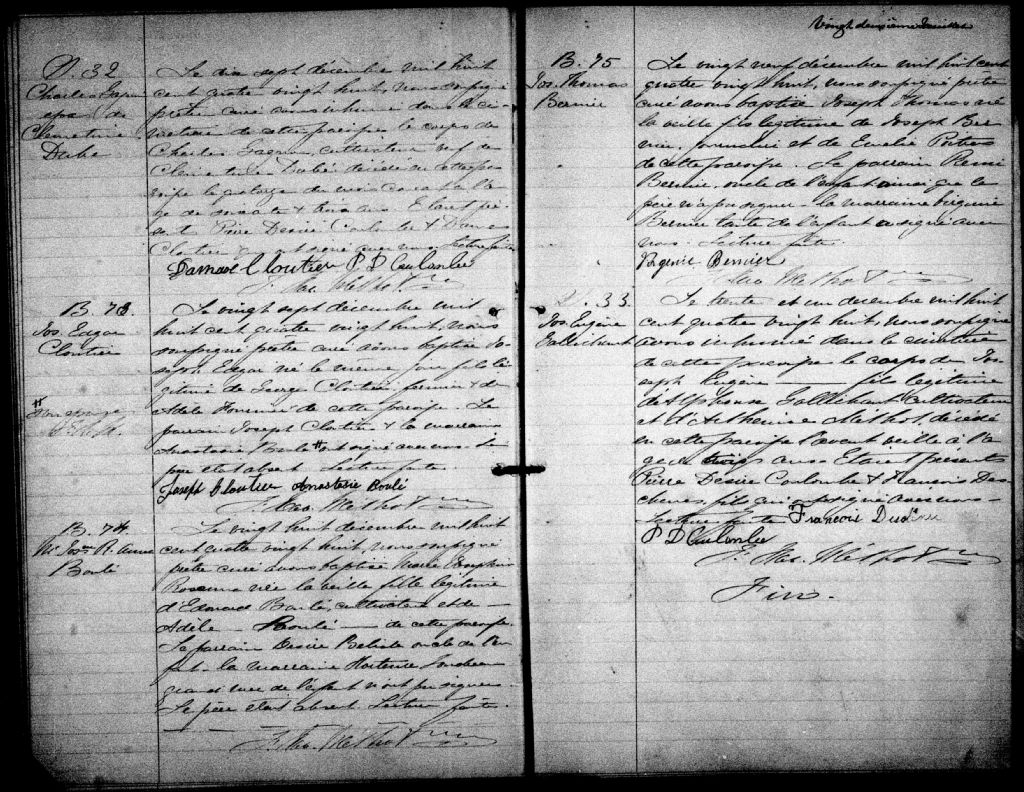 S. 32
Charles Gagné
époux de
Clémentine
Dubé
Le dix sept décembre mil huit
cent quatre vingt huit, nous soussigné
prêtre curé avons inhumé dans le cime
tière de cette paroisse le corps de
Charles Gagné, cultivateur veuf de
Dubé décédé en cette parois
du mois courant à l'â
ge de soixante & trois ans. Etaient pré
sents Pierre Désiré Coulombe & Damase
Cloutier qui ont signé avec nous Lecture faite
Damase Cloutier P D Coulombe
B. 73.
Jos. Edgar
Cloutier
Le vingt sept décembre mil
huit cent quatre vingt huit, nous
soussigné prêtre curé avons baptisé Jo
seph Edgar né le même jour fils lé
gitime de George Cloutier fermier & de
Adèle Fournier de cette paroisse. Le
parrain Joseph Cloutier & la marraine
Anastasie Boulé # ont signé avec nous. Le
père était absent. Lecture faite.
Joseph Cloutier Anastasie Boulé
B. 74
M. Jos. R. Anna
Boulé
Le vingt huit décembre mil huit
cent quatre vingt huit, nous soussigné
prêtre curé avons baptisé Marie Josephine
Rosanna née la veille fille légitime
d'Edouard Boulé, cultivateur et de
Adèle Boulé de cette paroisse.
Le parrain Désiré oncle de l'en
fant la marraine Hortense
grand mère de l'enfant n'ont pu signer.
Le père était absent Lecture faite.
Vingt deuxième feuillet
B. 75
Jos. Thomas
Bernier
Le vingt neuf décembre mil huit cent
quatre vingt huit, nous soussigné prêtre
curé avons baptisé Joseph Thomas né
la veille fils légitime de Joseph Ber
nier, journalier et de Emélie
de cette paroisse. Le parrain Rémi
Bernier, oncle de l'enfant ainsi que le
père n'a pu signer. la marraine Virginie
Bernier tante de l'enfant a signé avec
nous. Lecture faite.
Virginie Bernier
S. 33
Jos. Eugène
Gallichant
Le trente et un décembre mil huit
cent quatre vingt huit, nous soussigné
avons inhumé dans le cimetière
de cette paroisse le corps de Jo
seph Eugène fils légitime
de Alphonse Gallichant cultivateur
et d'Arthémise Méthot, décédé
en cette paroisse l'avant veille à l'â
ge de trois ans Etaient présents
Pierre Désiré Coulombe & François Des
chenes, fils qui ont signé avec nous
Lecture faite François
P D Coulombe
Méthot
Fin.